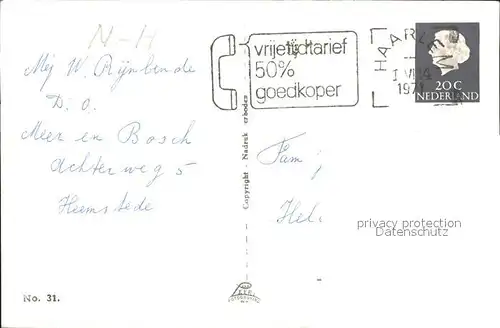 N-H
Mej W. Rijnbende
D. O.
Meer en Bosch
Achterweg 5
Heemstede
vrijetijdtarief
50%
goedkoper
HAARLEM
1971
20C
NEDERLAND
Copyright - Nadruk verboden
Fam
Hel
privacy protection
Datenschutz
No. 31.